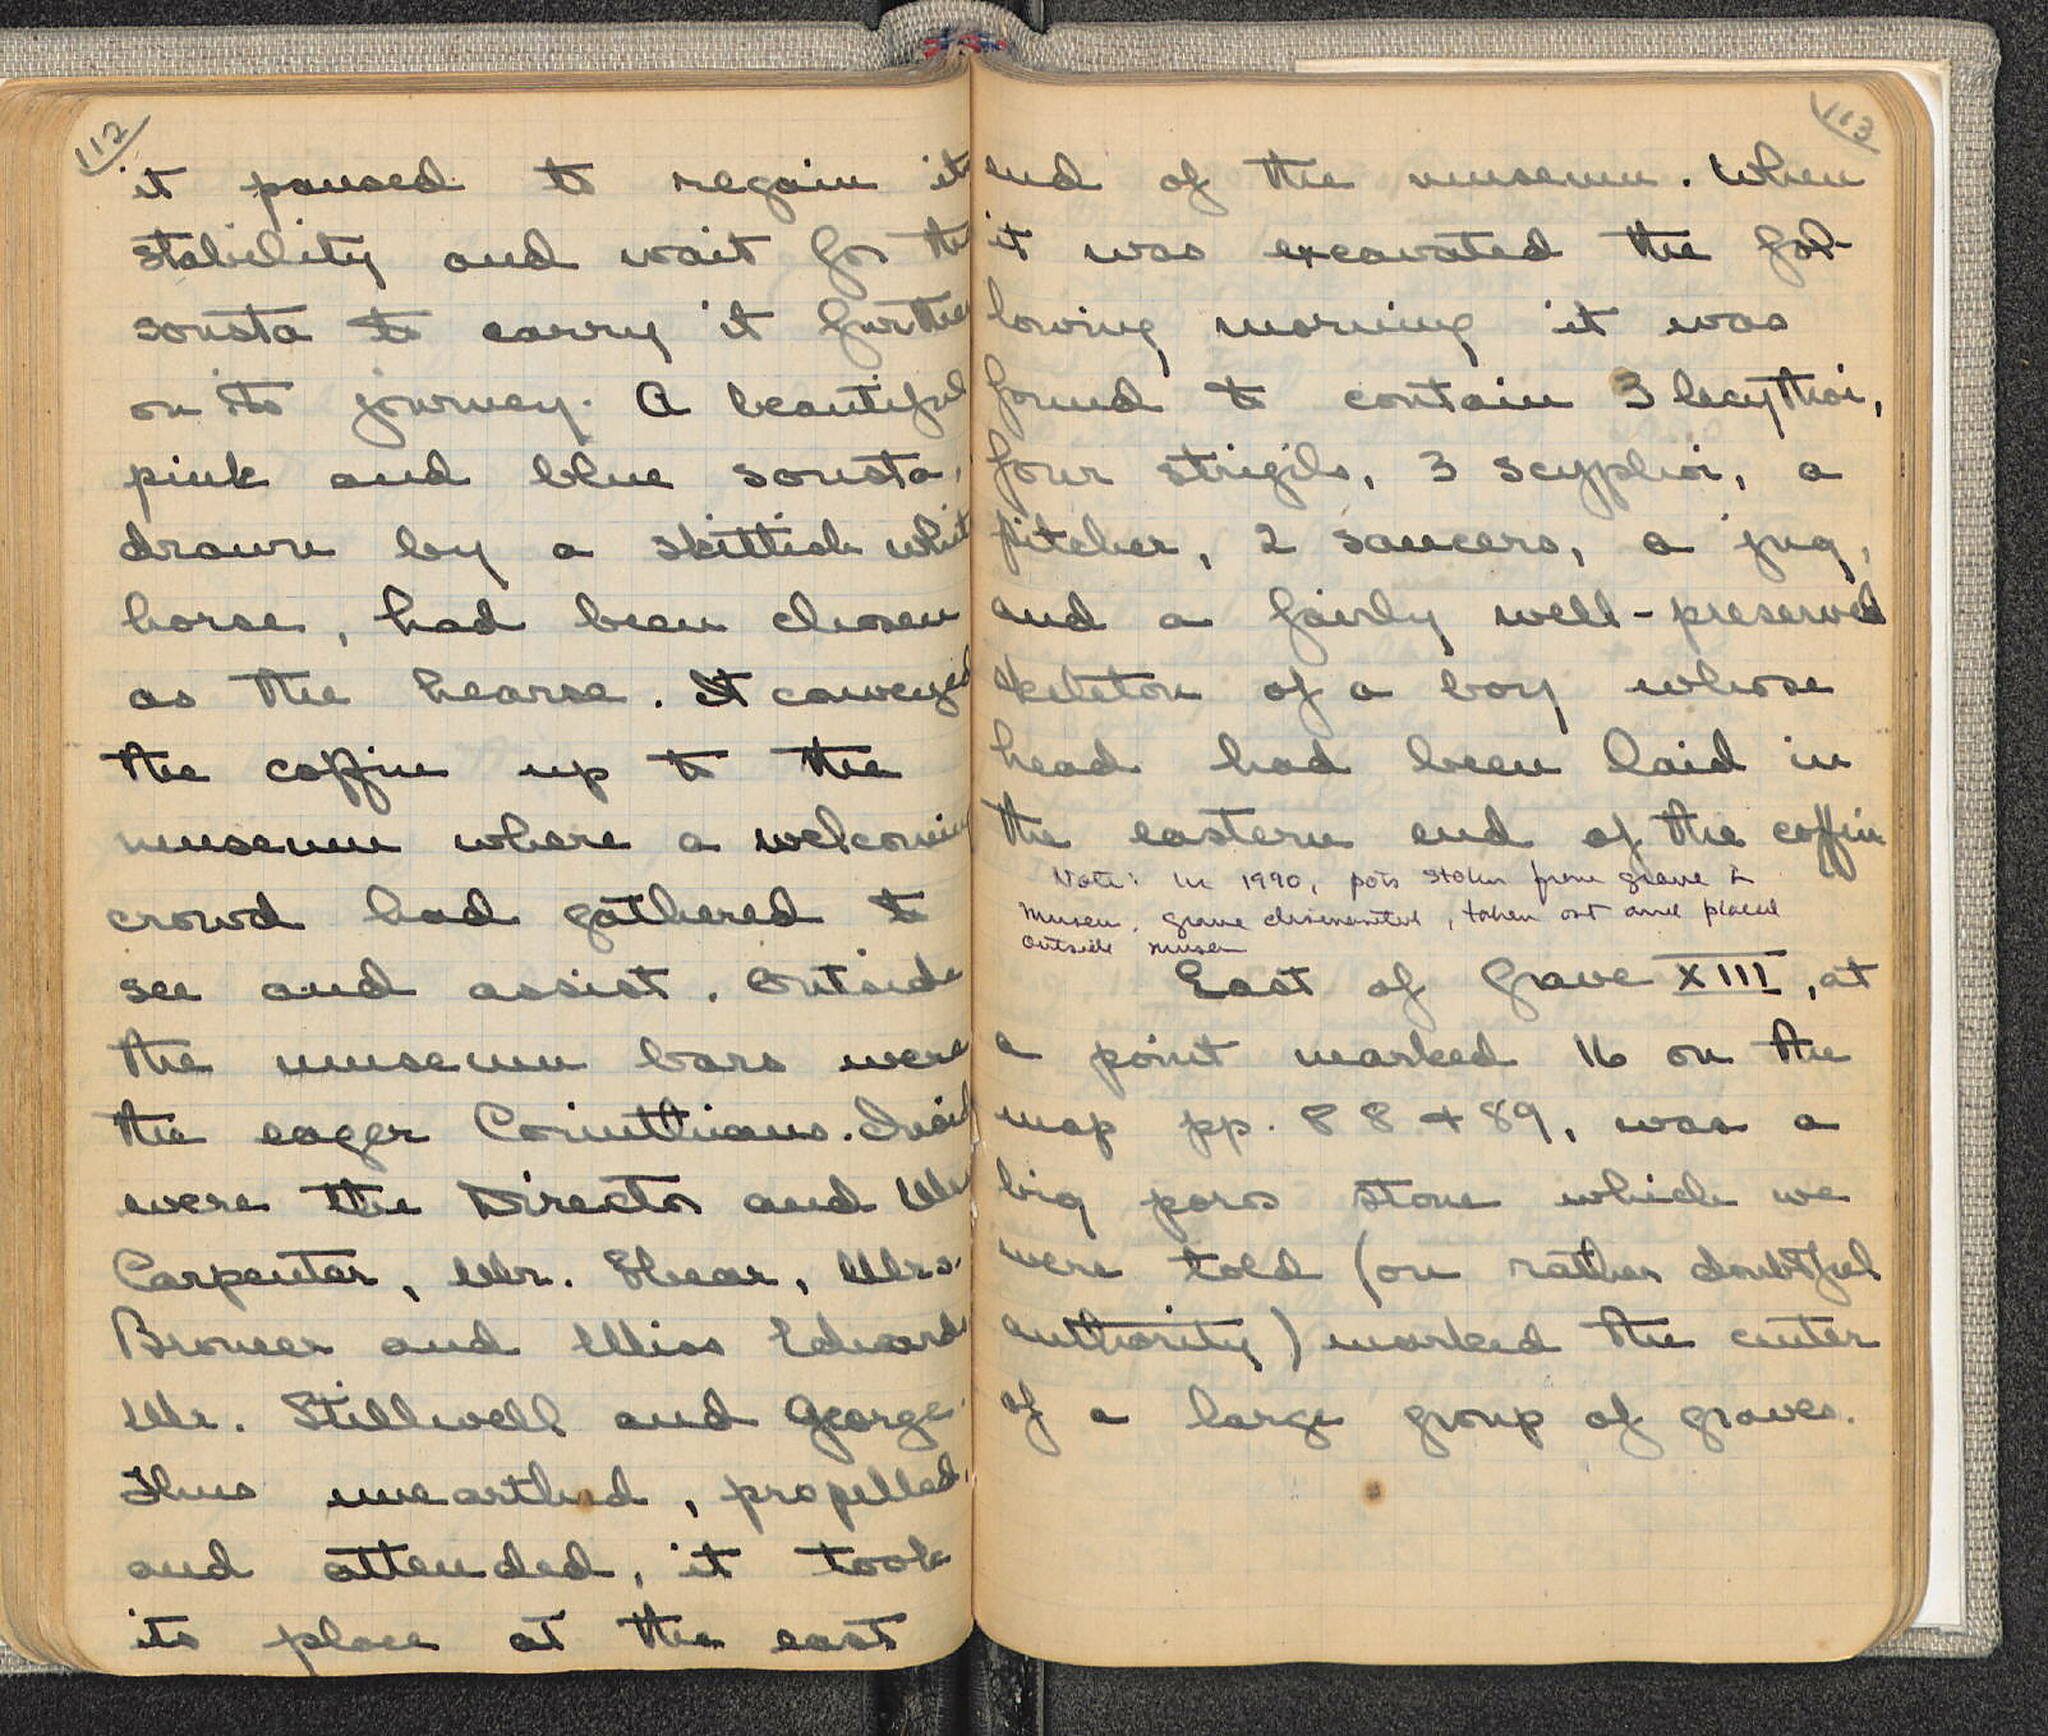 112
it paused to regain its
stability and wait for the
sousta to carry it further
on its journey. A beautiful
pink and blue sousta,
drawn by a skittish white
horse, had been chosen
as the hearse. It conveyed
the coffin up to the
museum where a welcoming
crowd had gathered to
see and assist. Outside
the museum bars were
the eager Corinthians. Inside
were the Director and Mr
Carpenter, Mr. Shear, Mrs.
Broneer and Miss Edwards
Mr. Stillwell and George.
Thus unearthed, propelled,
and attended, it took
its place at the east
113
end of the museum. When
it was excavated the fol-
lowing morning it was
found to contain 3 lecythoi,
four strigils, 3 scyphoi, a
pitcher, 2 saucers, a jug,
and a fairly well-preserved
skeleton of a boy whose
head had been laid in
the eastern end of the coffin
Note: in 1990, pots stolen from grave in
museum, grave dismantled, taken out and placed
outside museum
East of Grave XIII, at
a point marked 16 on the
map pp. 88 + 89, was a
big poros stone which we
were told (on rather doubtful
authority) marked the center
of a large group of graves.